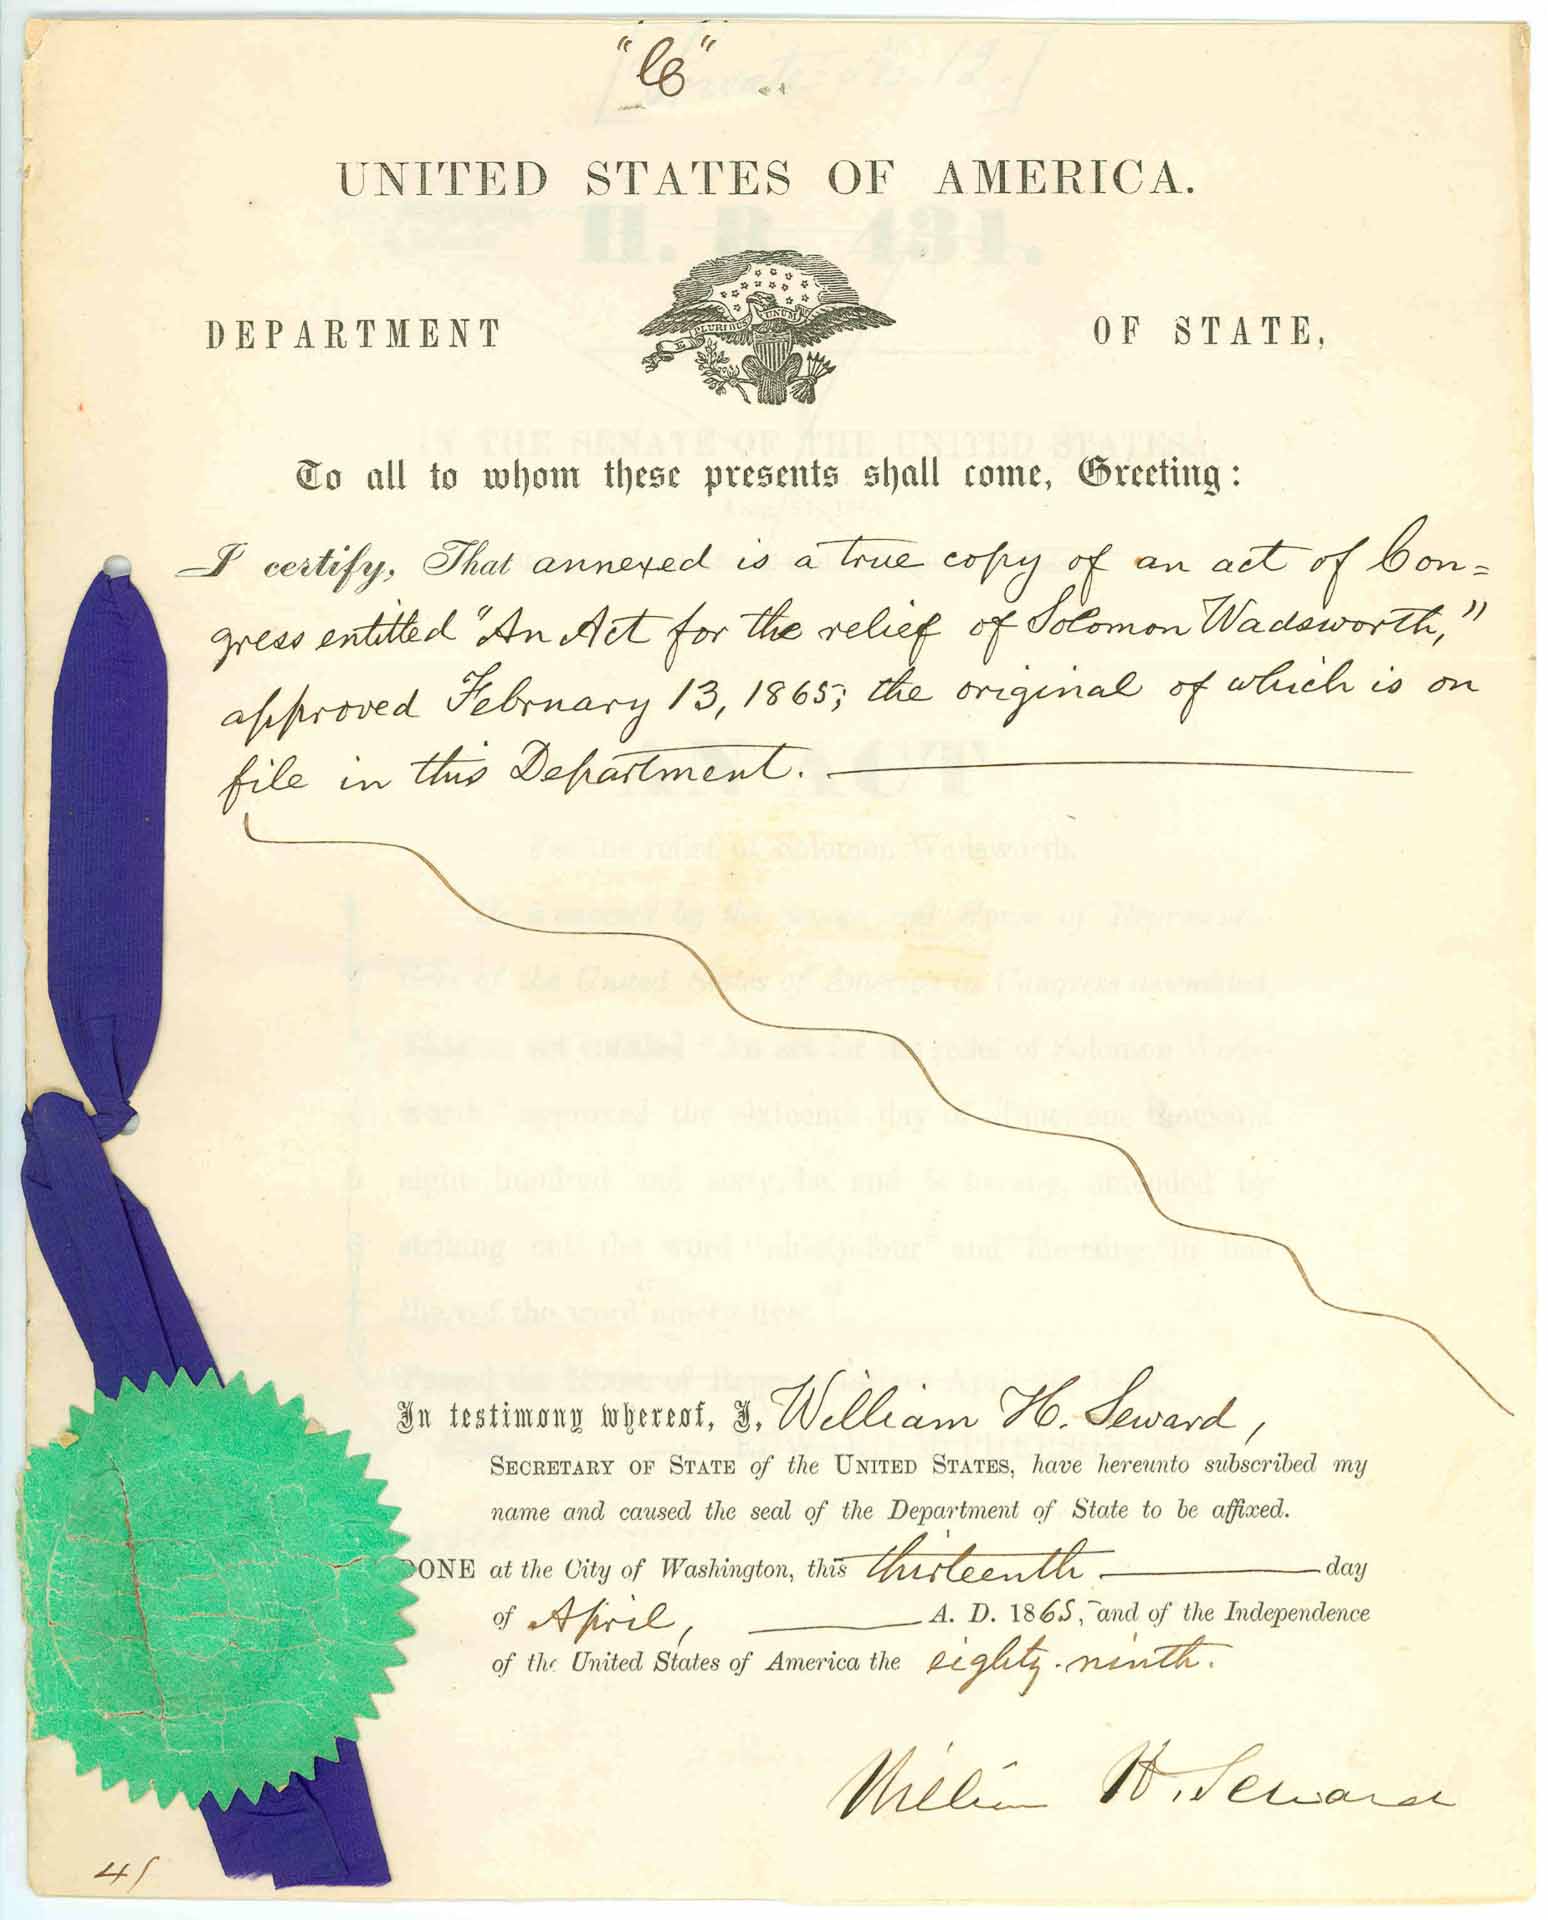 "C"
UNITED STATES OF AMERICA.
DEPARTMENT OF STATE,
E PLURIBUS UNUM
To all to whom these presents shall come, Greeting:
I certify, That annexed is a true copy of an act of Con=
gress entitled "An Act for the relief of Solomon Wadsworth,"
approved February 13, 1865; the original of which is on
file in this Department.
In testimony whereof, I, William H. Seward,
SECRETARY OF STATE of the UNITED STATES, have hereunto subscribed my
name and caused the seal of the Department of State to be affixed.
DONE at the City of Washington, this thirteenth day
of April, A. D. 1865, and of the Independence
of the United States of America the eighty-ninth.
William H. Seward